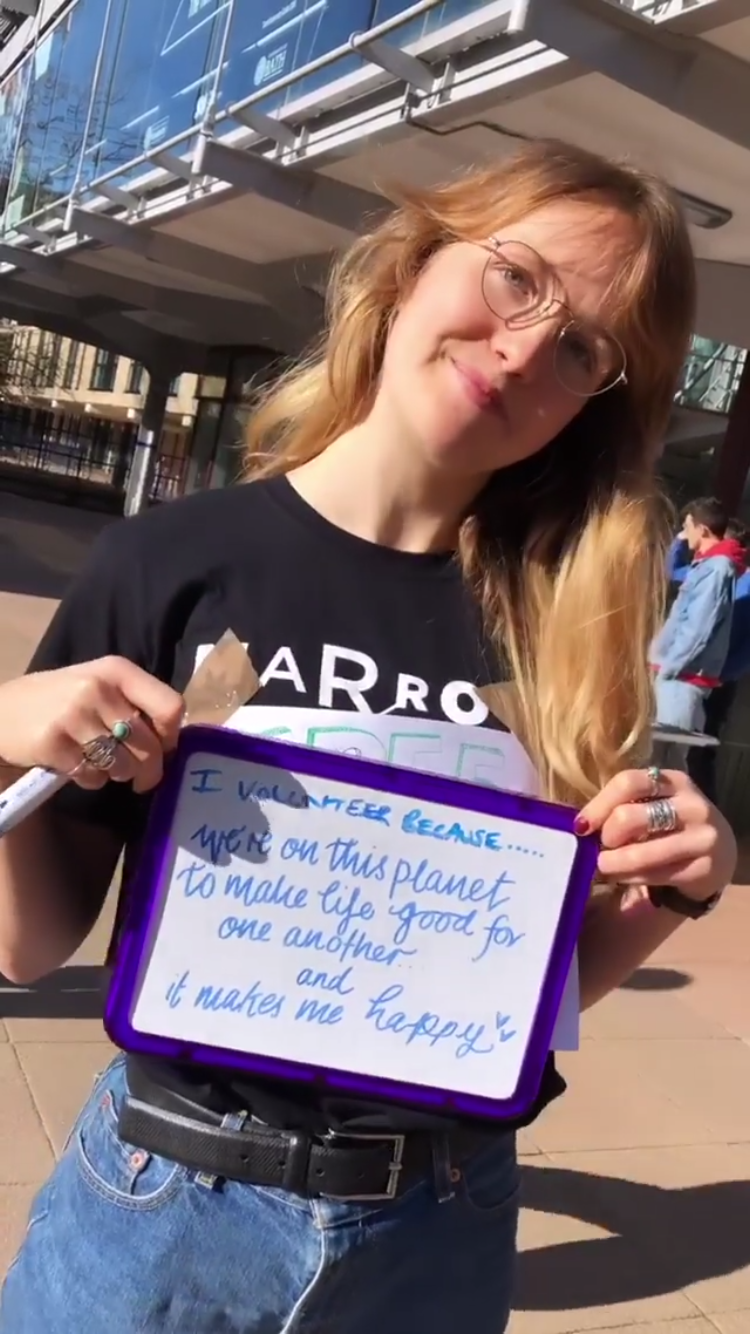 BATH
MARRO
FREE
I VOLUNTEER BECAUSE.....
we're on this planet
to make life good for
one another
and
it makes me happy